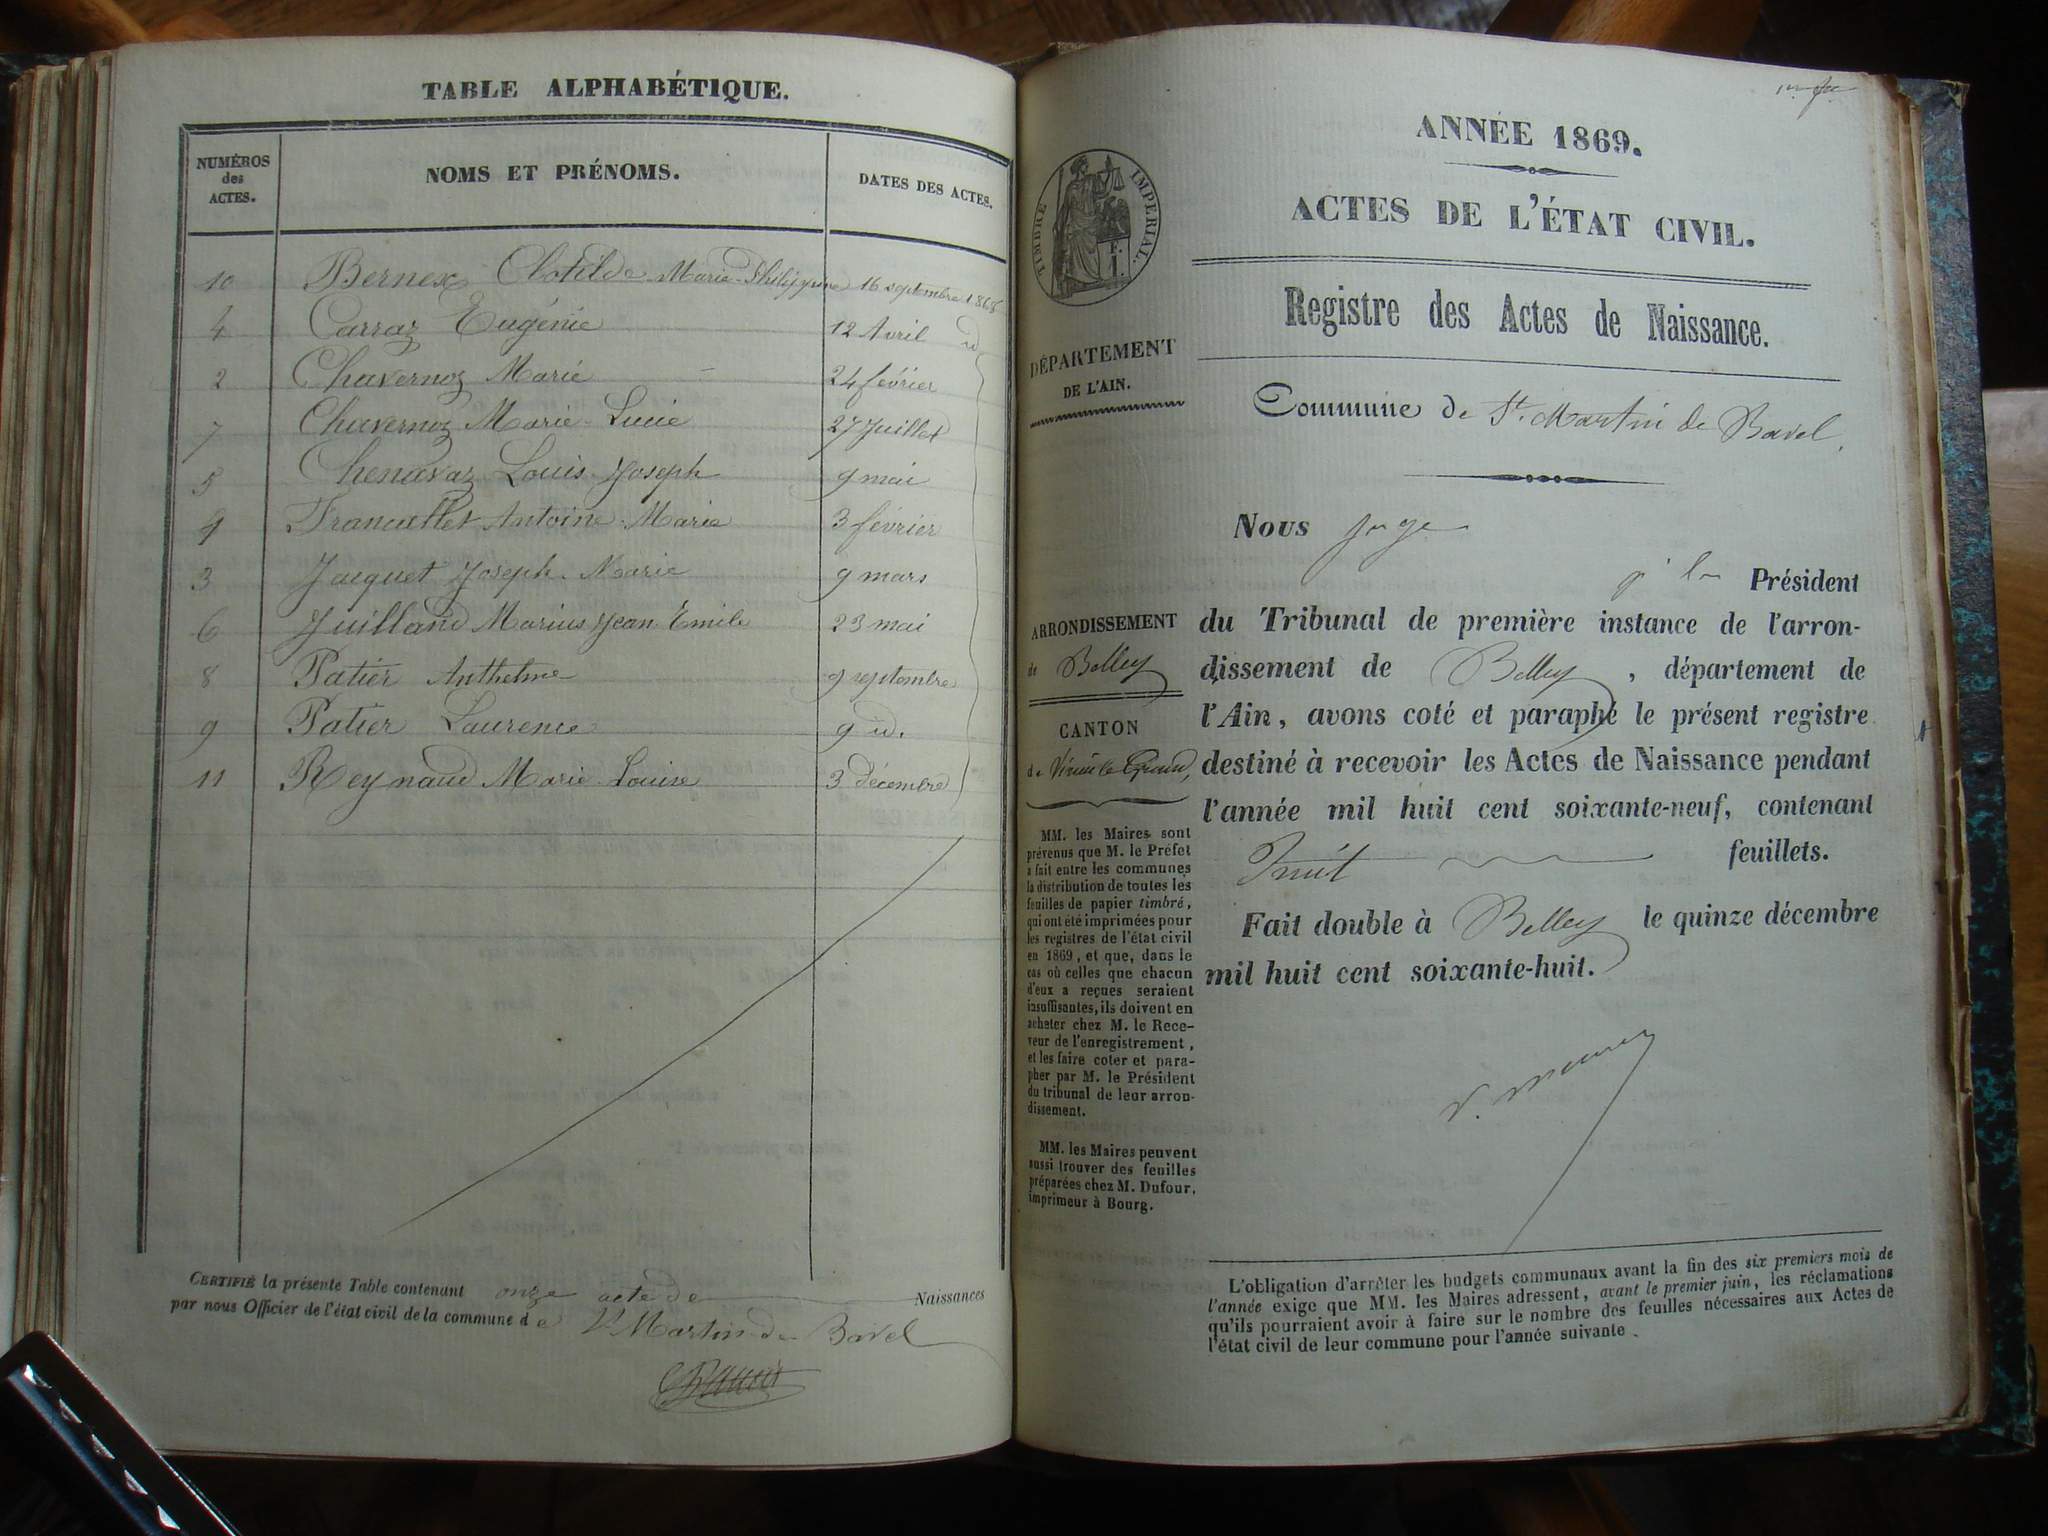 TABLE ALPHABÉTIQUE.
NUMÉROS des ACTES. NOMS ET PRÉNOMS. DATES DES ACTES.
10 Bernex Clotilde Marie-Philippine 16 septembre 1868
4 Carraz Eugénie 12 Avril id
2 Chavernoz Marie 24 février
7 Chavernoz Marie-Lucie 27 Juillet
5 Chenavaz Louis-Joseph 9 mai
1 Francillet Antoine-Marie 3 février
3 Jacquet Joseph-Marie 9 mars
6 Juilland Marius Jean-Emile 23 mai
8 Patier Anthelme 9 septembre
9 Patier Laurence 9 id.
11 Reynaud Marie-Louise 3 décembre
CERTIFIÉ la présente Table contenant onze acte de Naissances
par nous Officier de l'état civil de la commune de St Martin de Bavel
1er
ANNÉE 1869.
ACTES DE L'ÉTAT CIVIL.
TIMBRE IMPERIAL.
F.
1.
Registre des Actes de Naissance.
DÉPARTEMENT
DE L'AIN.
Commune de St. Martin de Bavel.
ARRONDISSEMENT
de Belley
CANTON
de
MM. les Maires sont
prévenus que M. le Préfet
a fait entre les communes
la distribution de toutes les
feuilles de papier timbré,
qui ont été imprimées pour
les registres de l'état civil
en 1869, et que, dans le
cas où celles que chacun
d'eux a reçues seraient
insuffisantes, ils doivent en
acheter chez M. le Rece-
veur de l'enregistrement,
et les faire coter et para-
pher par M. le Président
du tribunal de leur arron-
dissement.
MM. les Maires peuvent
aussi trouver des feuilles
préparées chez M. Dufour,
imprimeur à Bourg.
Nous juge
Président
du Tribunal de première instance de l'arron-
dissement de Belley, département de
l'Ain, avons coté et paraphé le présent registre
destiné à recevoir les Actes de Naissance pendant
l'année mil huit cent soixante-neuf, contenant
huit feuillets.
Fait double à Belley le quinze décembre
mil huit cent soixante-huit.
L'obligation d'arrêter les budgets communaux avant la fin des six premiers mois de
l'année exige que MM. les Maires adressent, avant le premier juin, les réclamations
qu'ils pourraient avoir à faire sur le nombre des feuilles nécessaires aux Actes de
l'état civil de leur commune pour l'année suivante.